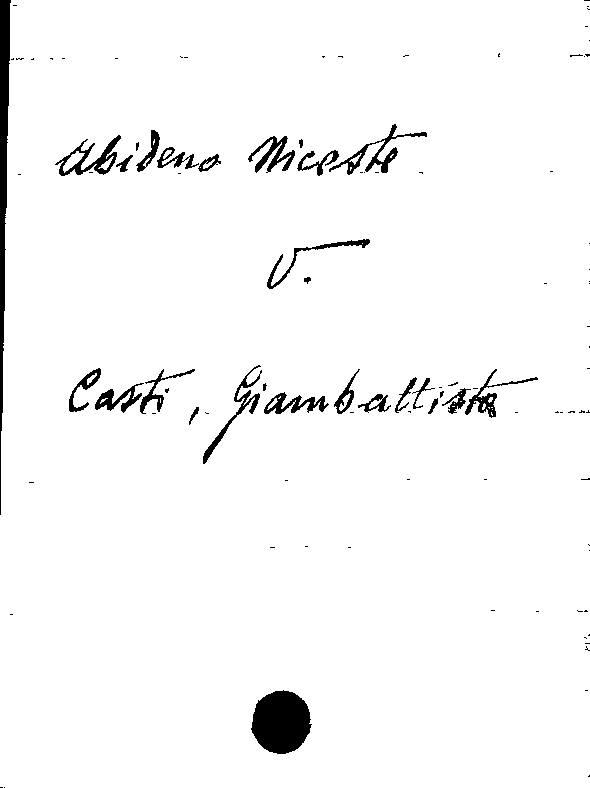 Abideno Niceste
V.
Casti, Giambattista